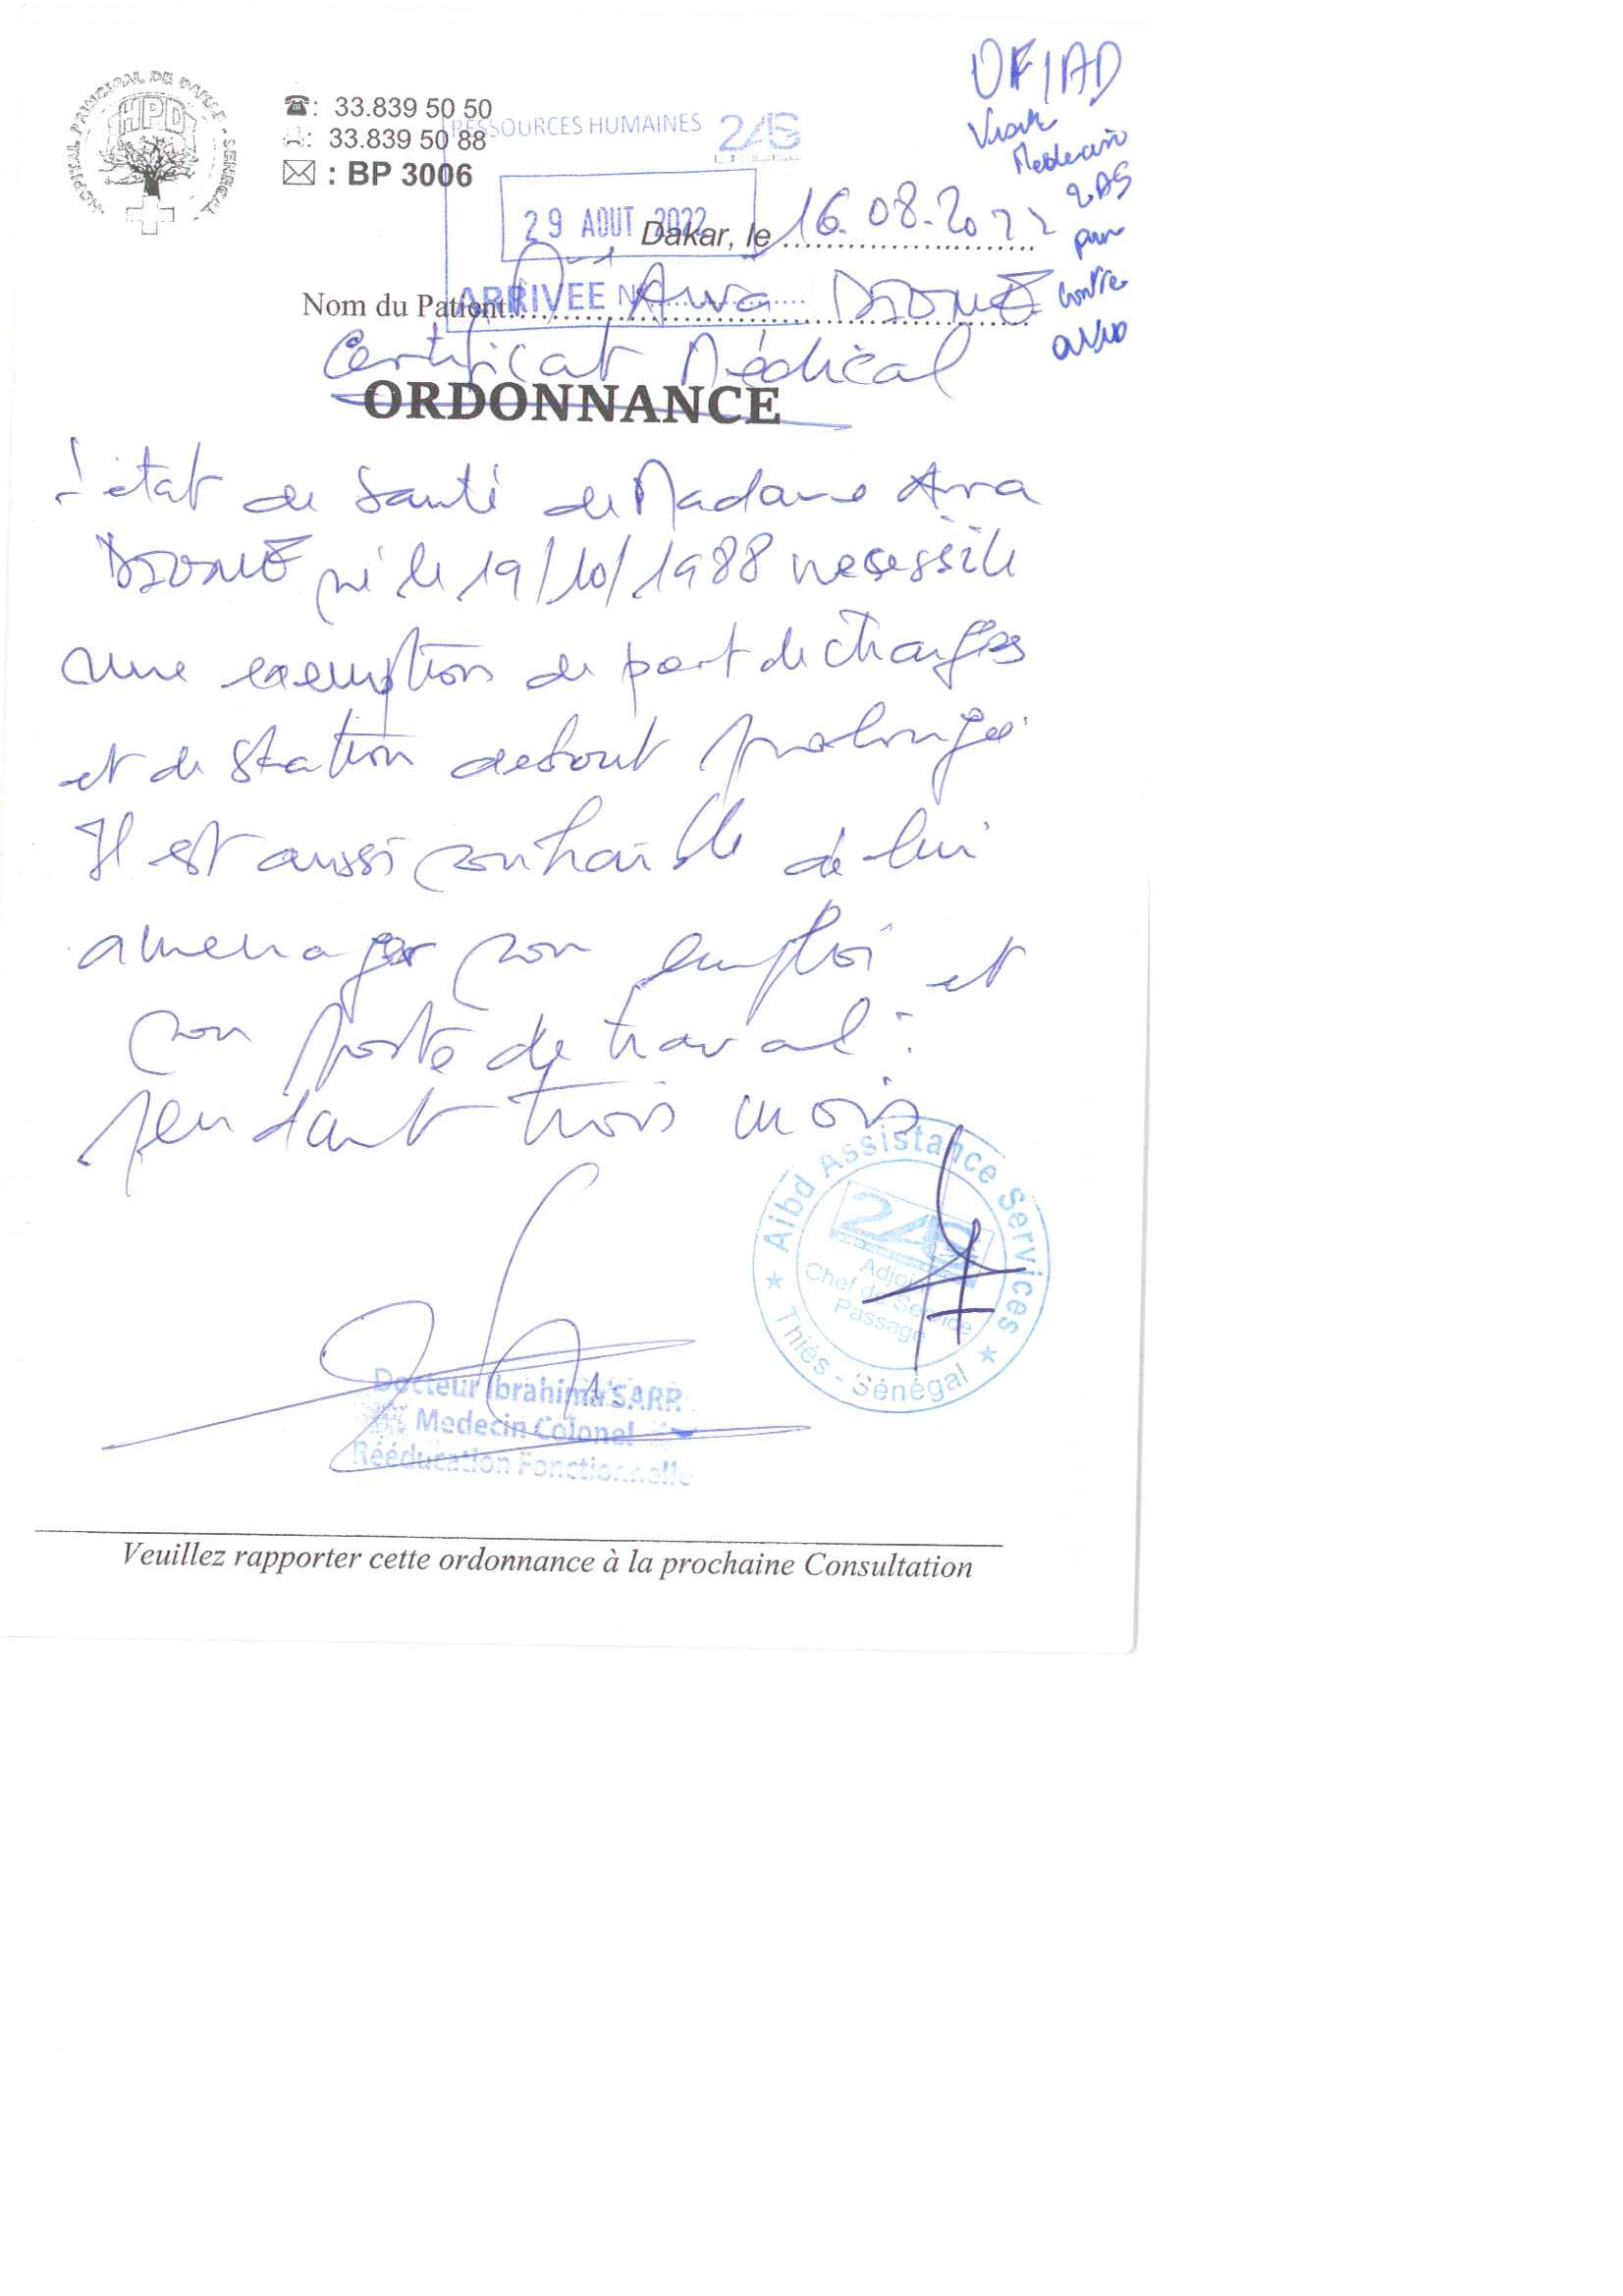 HOPITAL PRINCIPAL DE DAKAR - SENEGAL
HPD
: 33.839 50 50
: 33.839 50 88
: BP 3006
RESSOURCES HUMAINES 2AS
29 AOUT 2022
Dakar, le 16.08.2022
ARRIVEE N°
Nom du Patient Awa DIOME
Médecin
2AS
pour
contre
avis
Certificat Médical
ORDONNANCE
L'état de santé de Madame Awa
DIOME né le 19/10/1988 necessite
une exemption de port de charges
et de station debout prolongée
Il est aussi souhaitable de lui
amenager son emploi et
son poste de travail :
pendant trois mois
Aibd Assistance Services
2AS
Adjoint
Chef de Service
Passage
Thiés - Sénégal
Docteur Ibrahima SARR
Medecin Colonel
Rééducation Fonctionnelle
Veuillez rapporter cette ordonnance à la prochaine Consultation